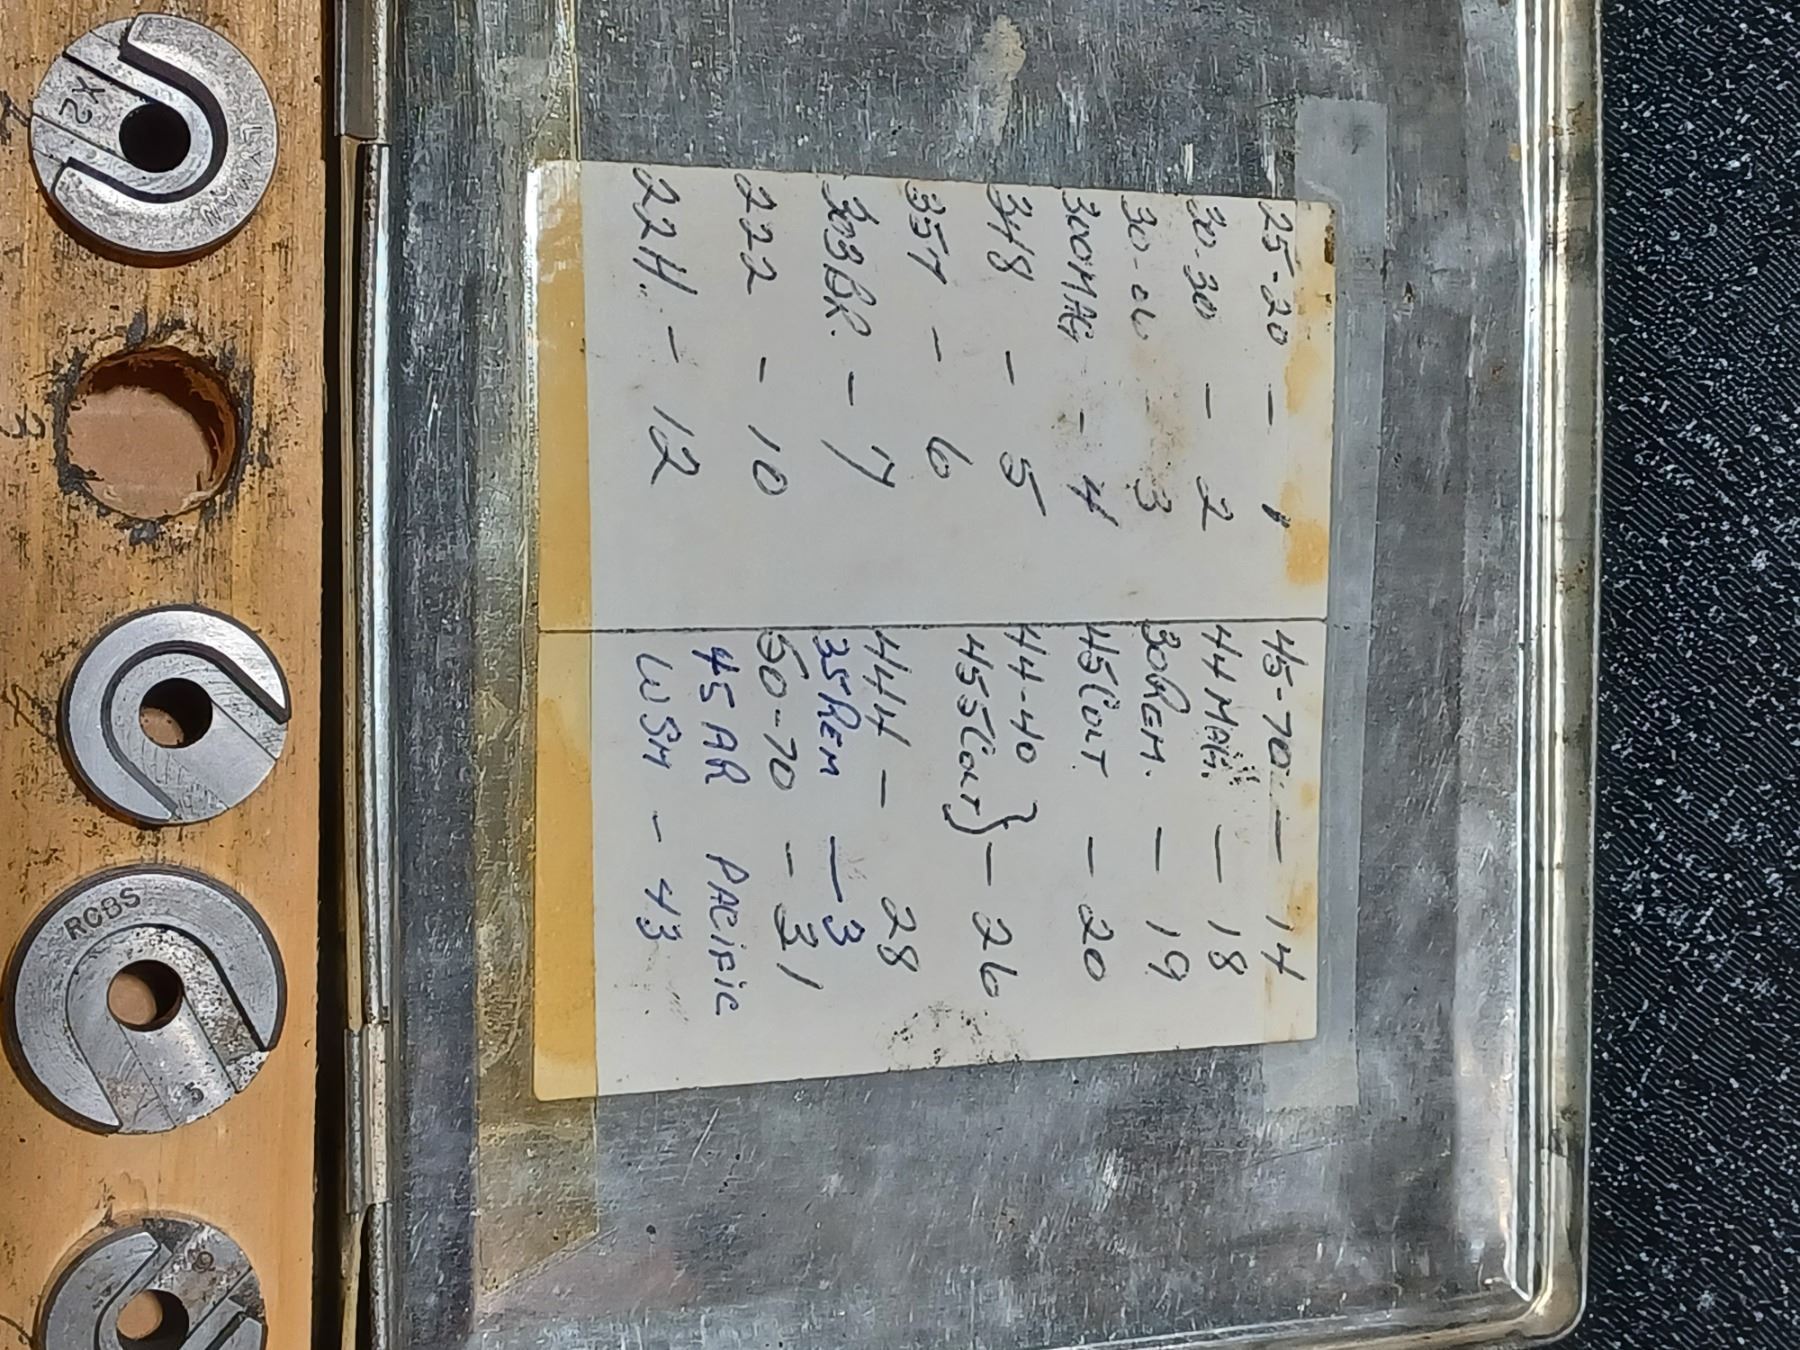 25-20 - 1
30-30 - 2
30-06 - 3
300MAG - 4
348 - 5
357 - 6
303BR. - 7
222 - 10
22H. - 12
45-70 - 14
44 MAG. - 18
30REM. - 19
45COLT - 20
44-40
455COLT } - 26
444 - 28
35REM - 3
50-70 - 31
45 AR PACIFIC
WSM - 43
LYMAN
X2
3
RCBS